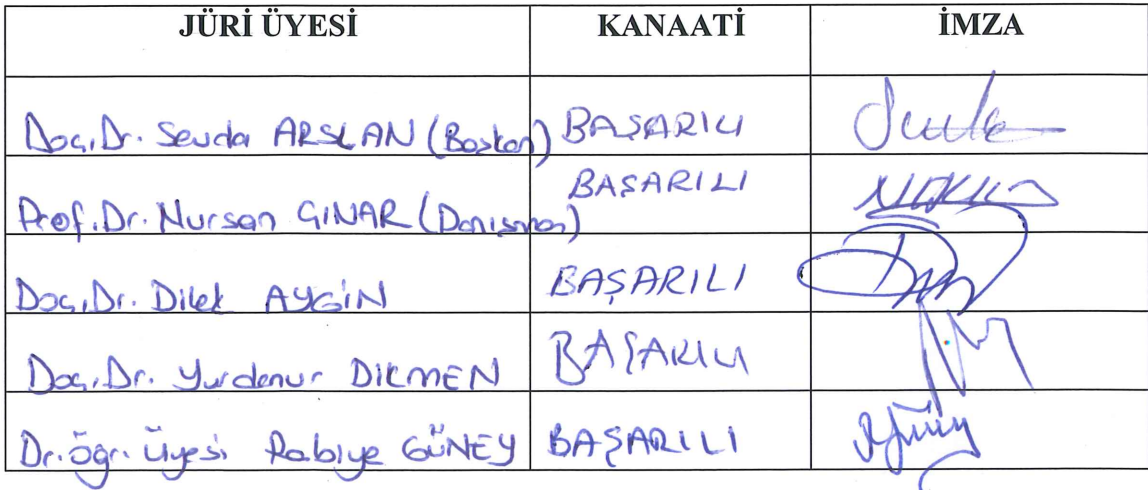 JÜRİ ÜYESİ KANAATİ İMZA
Doç.Dr. Sevda ARSLAN (Başkan) BAŞARILI
Prof.Dr. Nursan ÇINAR (Danışman) BAŞARILI
Doç.Dr. Dilek AYGİN BAŞARILI
Doç.Dr. Yurdanur DİKMEN BAŞARILI
Dr.Öğr. Üyesi Rabiye GÜNEY BAŞARILI